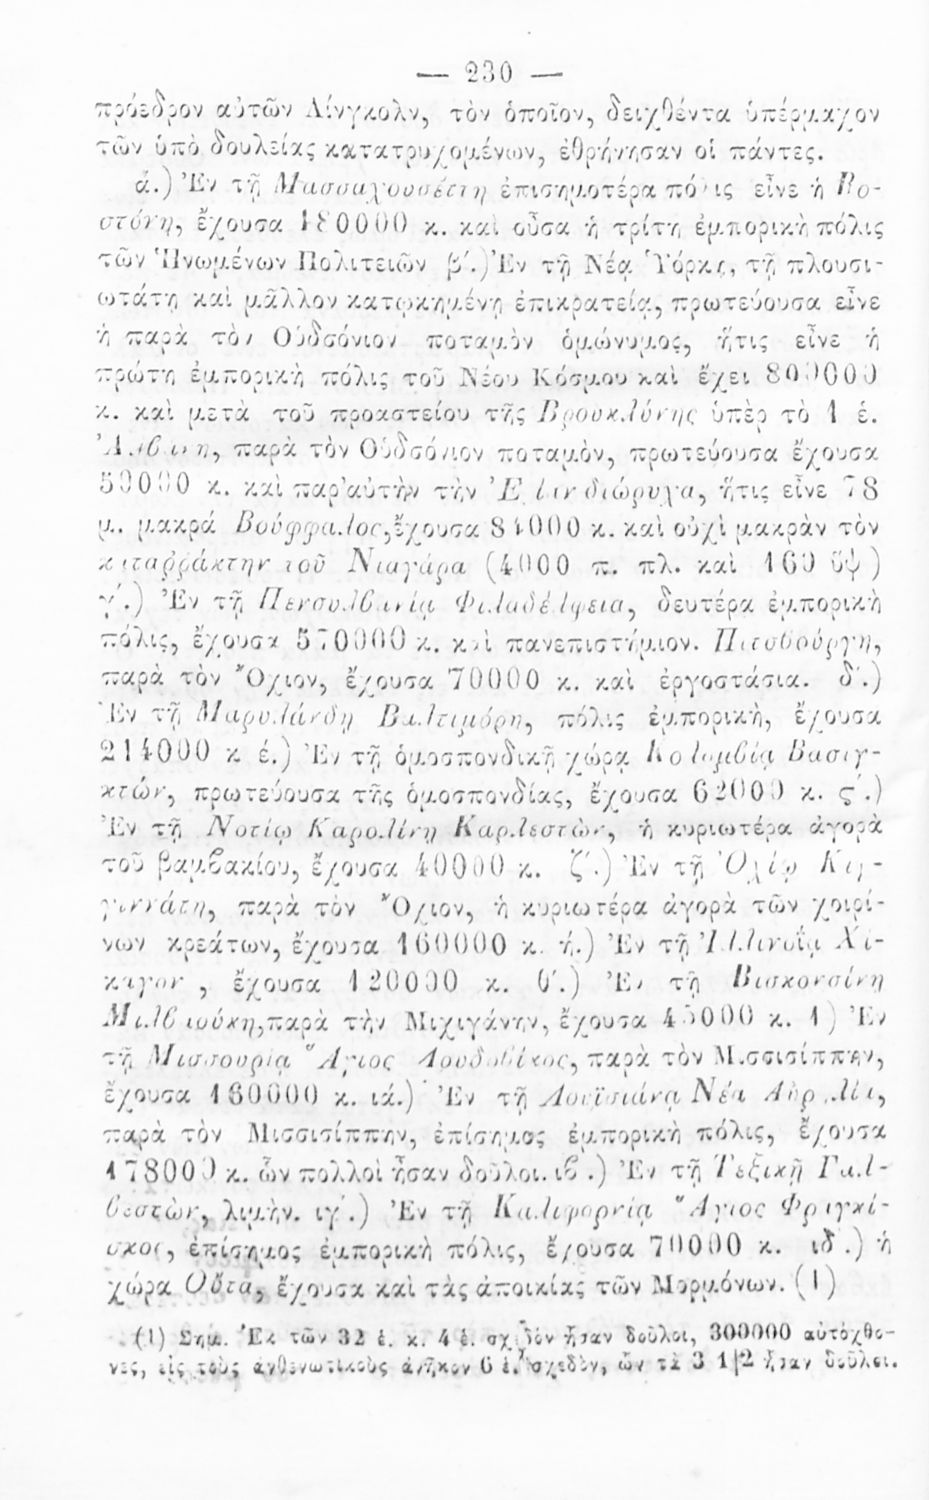 — 230 —
πρόεδρον αὐτῶν Λίνγκολν, τὸν ὁποῖον, δειχθέντα ὑπέρμαχον
τῶν ὑπὸ δουλείας κατατρυχομένων, ἐθρήνησαν οἱ πάντες.
ά.) Ἐν τῇ Μασσαχουσέττῃ ἐπισημοτέρα πόλις εἶνε ἡ Βο-
στόνη, ἔχουσα 180000 κ. καὶ οὖσα ἡ τρίτη ἐμπορικὴ πόλις
τῶν Ἡνωμένων Πολιτειῶν β΄.) Ἐν τῇ Νέᾳ Ὑόρκῃ, τῇ πλουσι-
ωτάτῃ καὶ μᾶλλον κατῳκημένῃ ἐπικρατείᾳ, πρωτεύουσα εἶνε
ἡ παρὰ τὸν Οὐδσόνιον ποταμὸν ὁμώνυμος, ἥτις εἶνε ἡ
πρώτη ἐμπορικὴ πόλις τοῦ Νέου Κόσμου καὶ ἔχει 800000
κ. καὶ μετὰ τοῦ προαστείου τῆς Βρουκλύνης ὑπὲρ τὸ 1 ἑ.
Ἀλβάνη, παρὰ τὸν Οὐδσόνιον ποταμὸν, πρωτεύουσα ἔχουσα
50000 κ. καὶ παρ' αὐτὴν τὴν διώρυχα, ἥτις εἶνε 78
μ. μακρά Βούφφαλος, ἔχουσα 81000 κ. καὶ οὐχὶ μακρὰν τὸν
καταῤῥάκτην τοῦ Νιαγάρα (4000 π. πλ. καὶ 160 ὕψ)
γ΄.) Ἐν τῇ Πενσυλβανίᾳ Φιλαδέλφεια, δευτέρα ἐμπορικὴ
πόλις, ἔχουσα 570000 κ. καὶ πανεπιστήμιον. Πιτσβούργη,
παρὰ τὸν Ὄχιον, ἔχουσα 70000 κ. καὶ ἐργοστάσια. δ΄.)
Ἐν τῇ Μαρυλάνδῃ Βαλτιμόρη, πόλις ἐμπορικὴ, ἔχουσα
214000 κ έ.) Ἐν τῇ ὁμοσπονδικῇ χώρᾳ Κολομβίᾳ Βασιγ-
κτών, πρωτεύουσα τῆς ὁμοσπονδίας, ἔχουσα 62000 κ. ς΄.)
Ἐν τῇ Νοτίῳ Καρολίνῃ Καρλεστὼν, ἡ κυριωτέρα ἀγορὰ
τοῦ βαμβακίου, ἔχουσα 40000 κ. ζ΄.) Ἐν τῇ Ὀχίῳ Κιγ-
γιννάτη, παρὰ τὸν Ὄχιον, ἡ κυριωτέρα ἀγορὰ τῶν χοιρί-
νων κρεάτων, ἔχουσα 160000 κ. ή.) Ἐν τῇ Ἰλλινοΐᾳ Χι-
καγον, ἔχουσα 120000 κ. θ΄.) Ἐν τῇ Βισκονσίνῃ
Μιλβωύκη, παρὰ τὴν Μιχιγάνην, ἔχουσα 45000 κ. ί) Ἐν
τῇ Μισσουρίᾳ Ἅγιος Λουδοβίκος, παρὰ τὸν Μισσισίππην,
ἔχουσα 160000 κ. ιά.) Ἐν τῇ Λουϊσιάνᾳ Νέα Αὐρηλία,
παρὰ τὸν Μισσισίππην, ἐπίσημος ἐμπορικὴ πόλις, ἔχουσα
178000 κ. ὧν πολλοὶ ἦσαν δοῦλοι. ιβ΄.) Ἐν τῇ Τεξικῇ Γαλ-
βεστὼν, λιμὴν. ιγ΄.) Ἐν τῇ Καλιφορνίᾳ Ἅγιος Φραγκί-
σκος, ἐπίσημος ἐμπορικὴ πόλις, ἔχουσα 70000 κ. ιδ΄.) ἡ
χώρα Οὔτα, ἔχουσα καὶ τὰς ἀποικίας τῶν Μορμόνων. (1)
(1) Σημ. Ἐκ τῶν 32 ἑ. κ. 4 ἑ. σχεδὸν ἦσαν δοῦλοι, 300000 αὐτόχθο-
νες, εἰς τοὺς ἀνθενωτικοὺς ἀνῆκον 6 ἑ. σχεδὸν, ὧν τὰ 3 1|2 ἦσαν δοῦλοι.